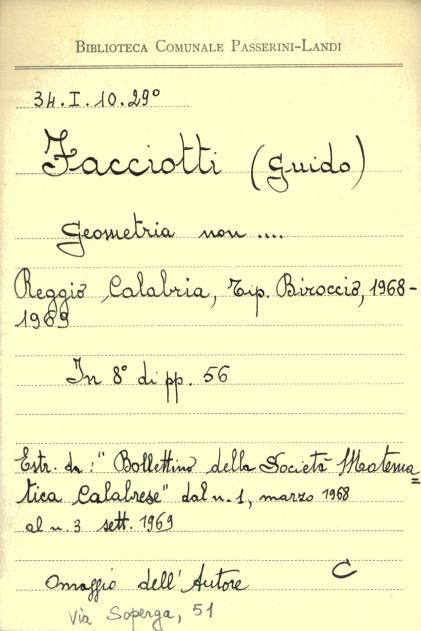 BIBLIOTECA COMUNALE PASSERINI-LANDI
34.I.10.29°
Facciotti (Guido)
Geometria non ....
Reggio Calabria, Tip. Biroccio, 1968-
1969
In 8° di pp. 56
Estr. da: "Bollettino della Società Matema=
tica Calabrese" dal n. 1, marzo 1968
al n. 3 sett. 1969
Omaggio dell'Autore C
Via Soperga, 51